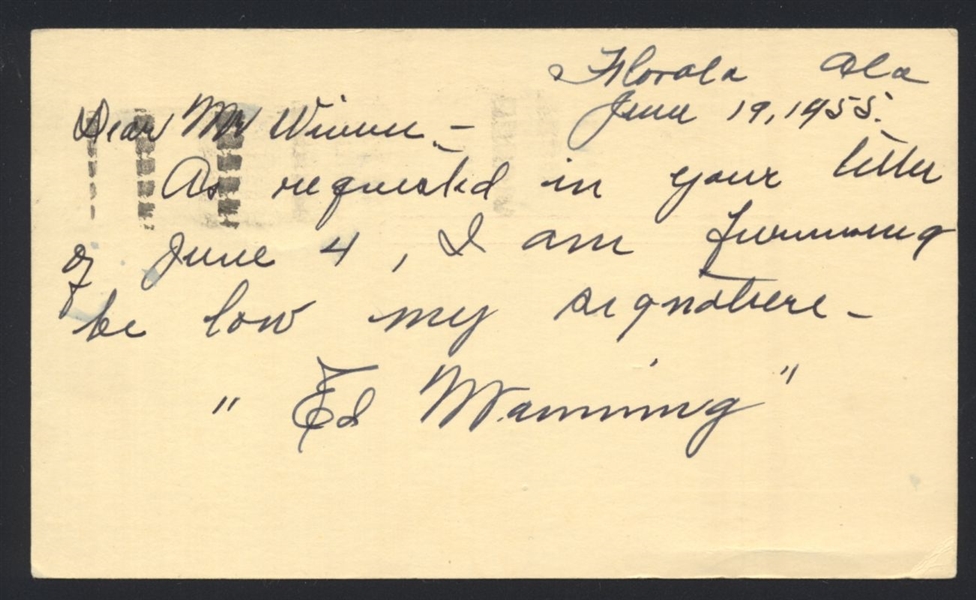 Florala Ala
June 19, 1955.
Dear Mr Winne -
As requested in your letter
of June 4, I am
be low my signature -
" Ed Manning "